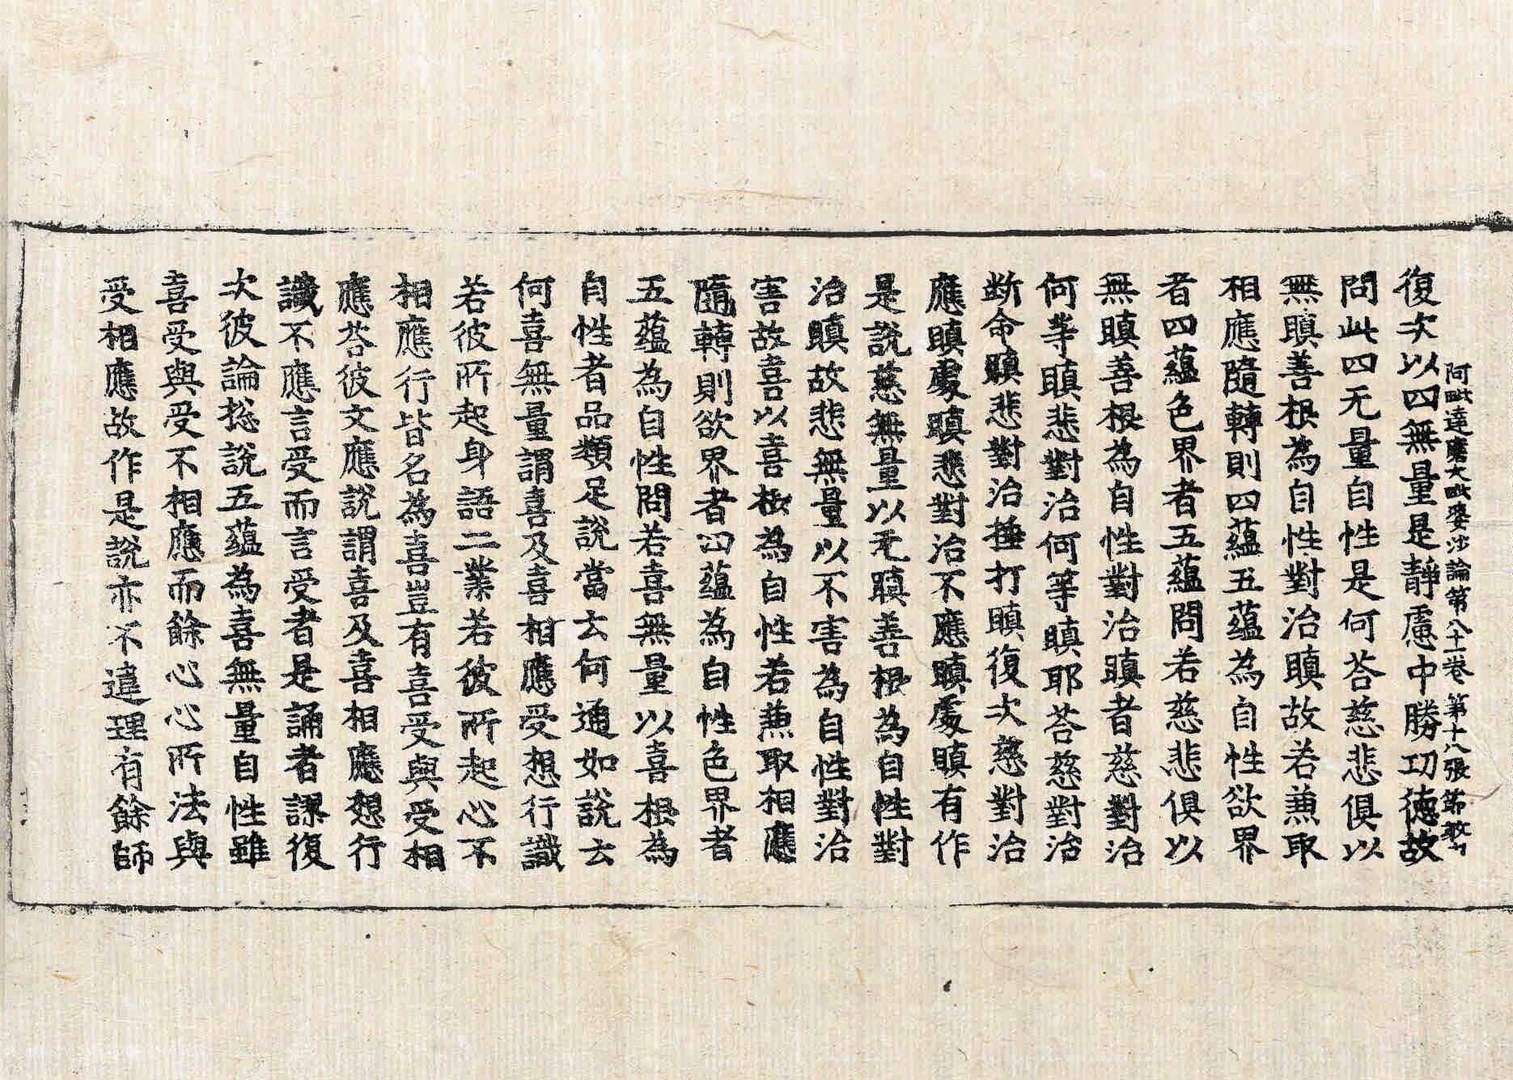 阿毗達磨大毗婆沙論第八十一卷 第十八張 節
復次以四無量是靜慮中勝功德故
問此四无量自性是何荅慈悲俱以
無瞋善根為自性對治瞋故若兼取
相應隨轉則四蘊五蘊為自性欲界
者四蘊色界者五蘊問若慈悲俱以
無瞋善根為自性對治瞋者慈對治
何等瞋悲對治何等瞋耶荅慈對治
断命瞋悲對治捶打瞋復次慈對治
應瞋處瞋悲對治不應瞋處瞋有作
是說慈無量以无瞋善根為自性對
治瞋故悲無量以不害為自性對治
害故喜以喜根為自性若兼取相應
隨轉則欲界者四蘊為自性色界者
五蘊為自性問若喜無量以喜根為
自性者品類足說當云何通如說云
何喜無量謂喜及喜相應受想行識
若彼所起身語二業若彼所起心不
相應行皆名為喜豈有喜受與受相
應荅彼文應說謂喜及喜相應想行
識不應言受而言受者是誦者謬復
次彼論捴說五蘊為喜無量自性雖
喜受與受不相應而餘心心所法與
受相應故作是說亦不違理有餘師